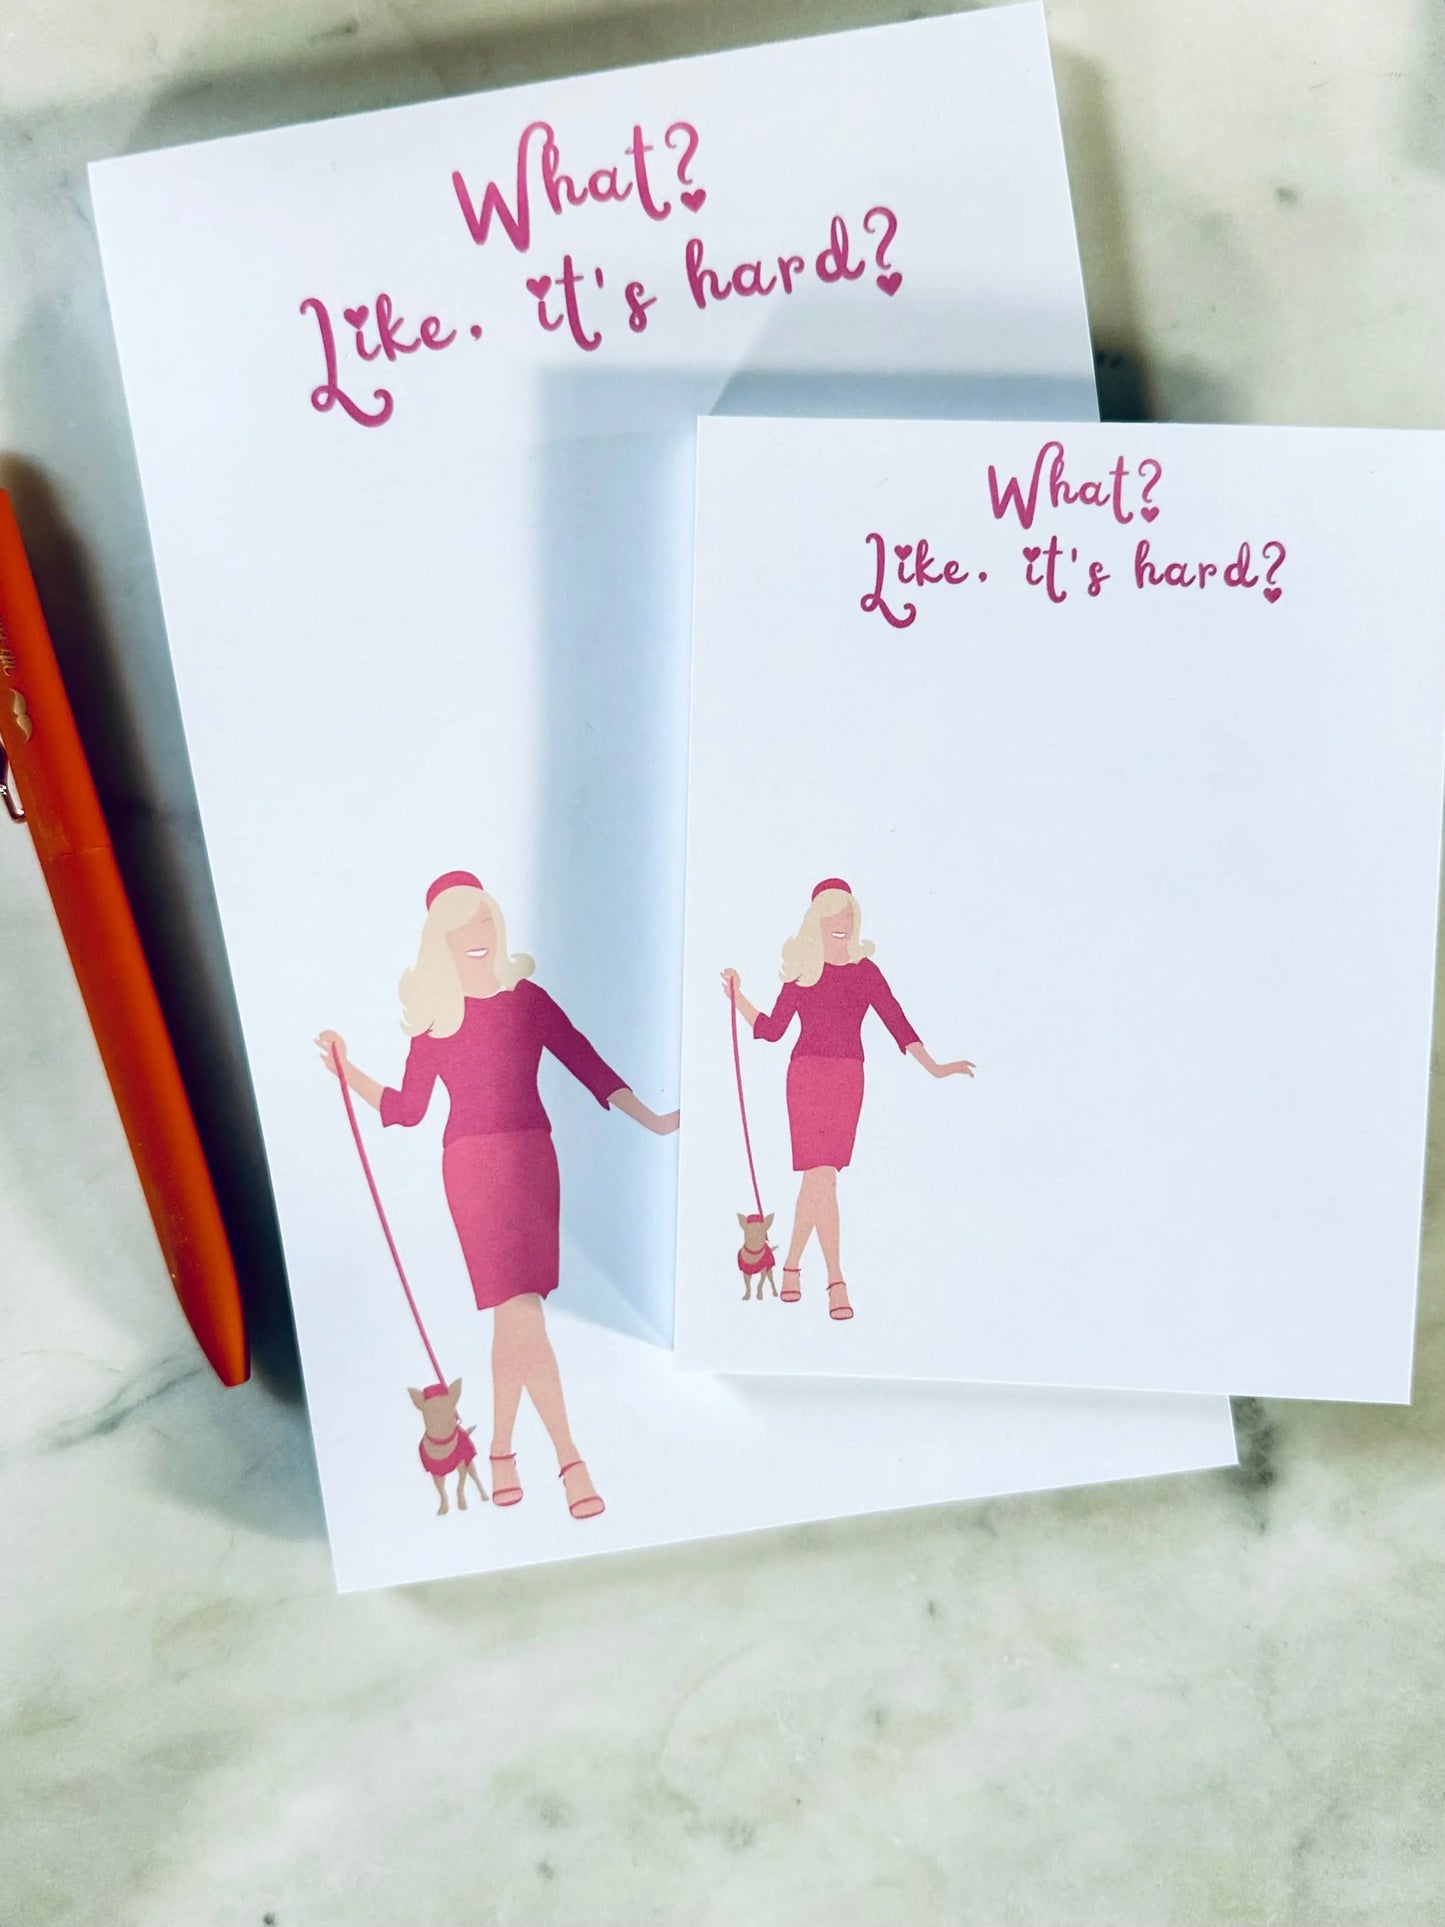 What?
Like, it's hard?
What?
Like, it's hard?